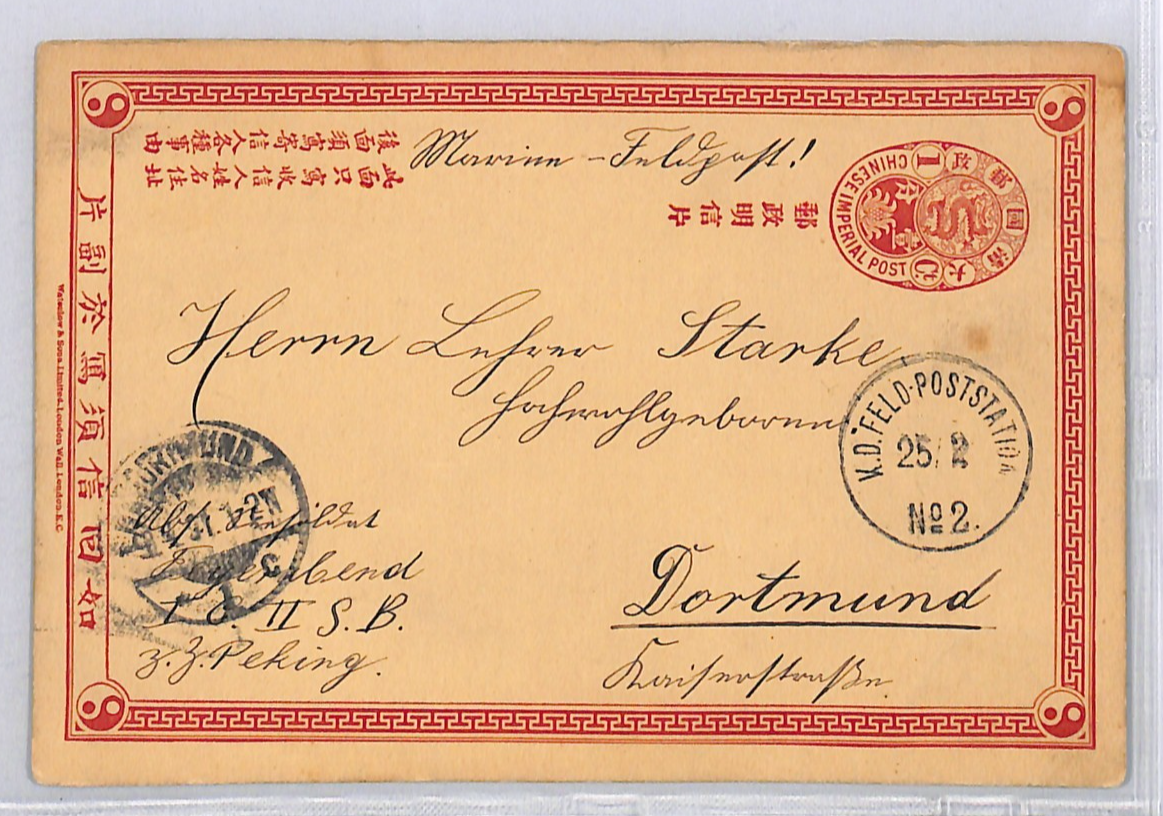 後面須寫寄信人各種事由
此面只寫收信人姓名住址
Marine-Feldpost!
郵政明信片
大清國郵政
壹分
1 Ct
CHINESE IMPERIAL POST
如回信須寫於副片
Waterlow & Sons Limited, London Wall, London, E.C.
Herrn Lehrer Starke
Hochwohlgeboren
K.D. FELD-POSTSTATION
25/2
No 2.
DORTMUND
1-2N
Abs. Seesoldat
Feyerabend
II S.B.
z. Z. Peking.
Dortmund
Kaiserstraße.